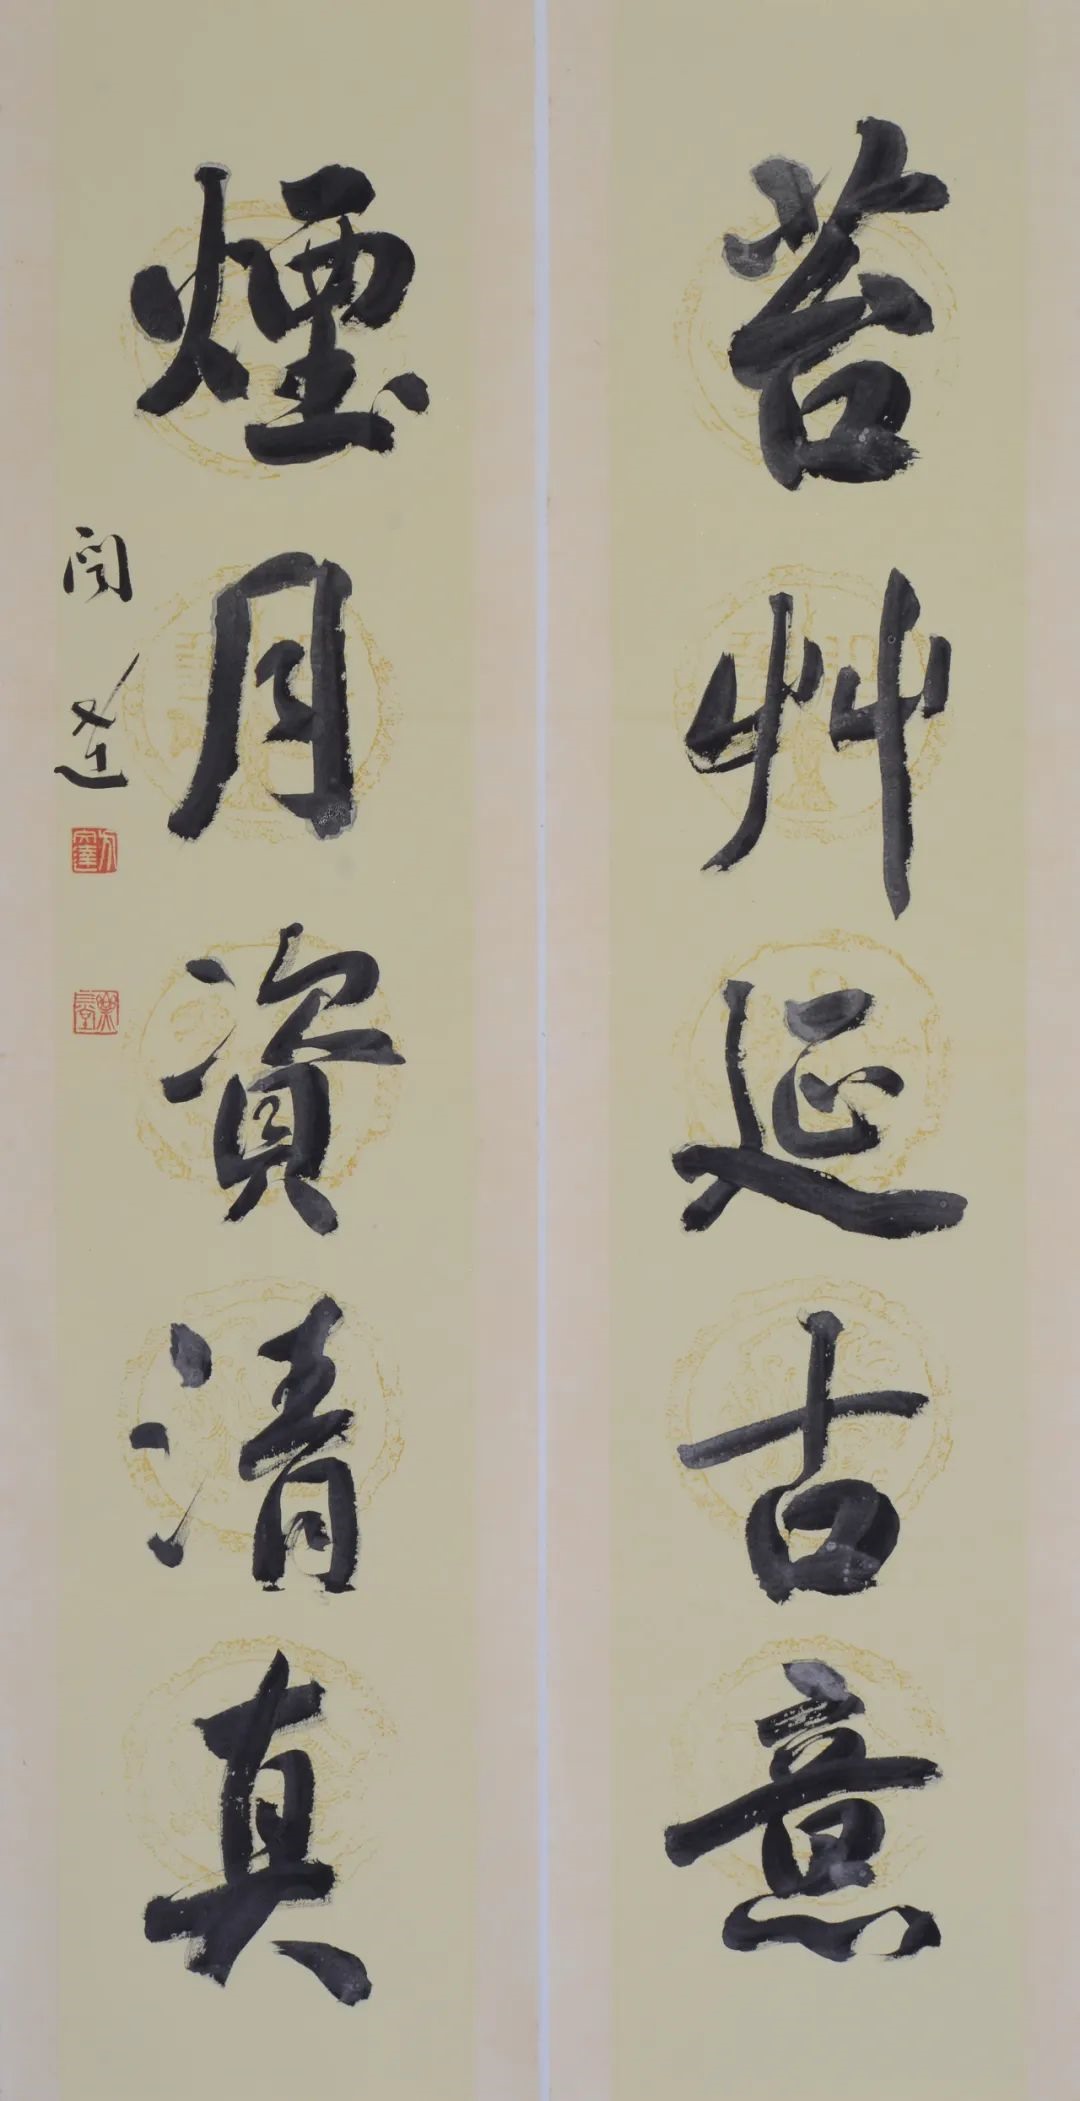 苔艸延古意
煙月資清真